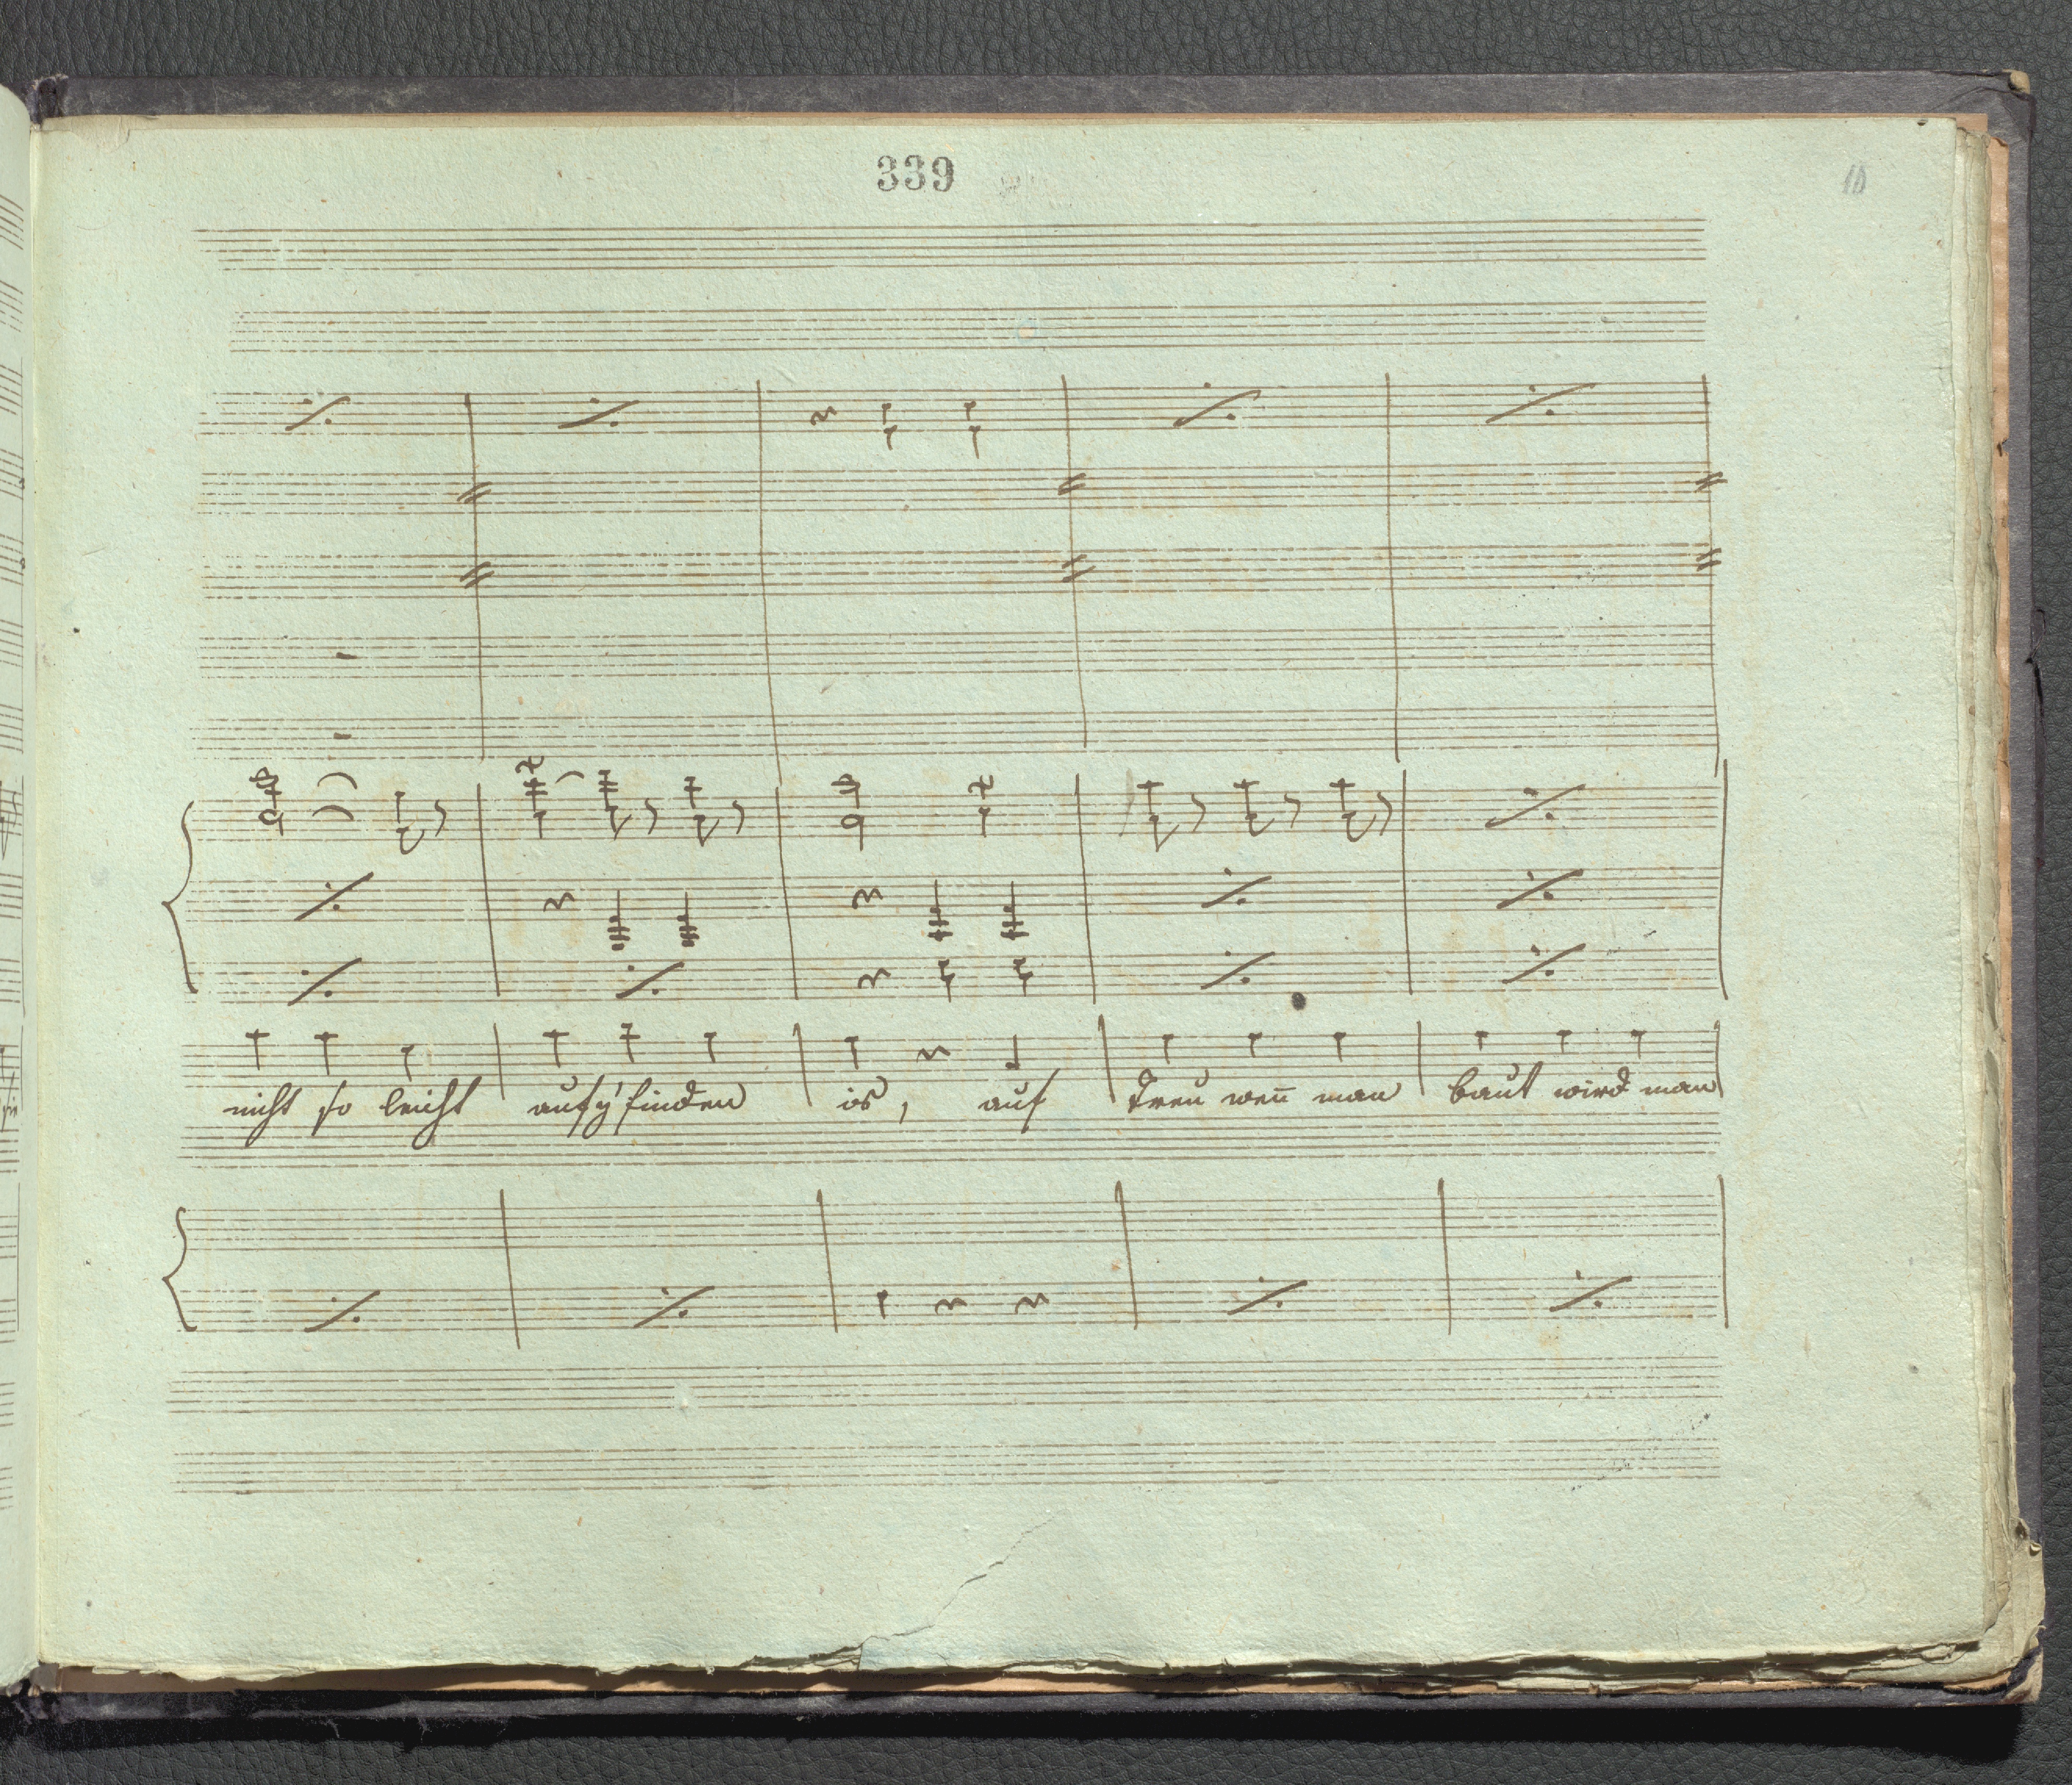 339
10
nicht so leicht aufz'finden is, auf Treu wen̄ man baut wird man